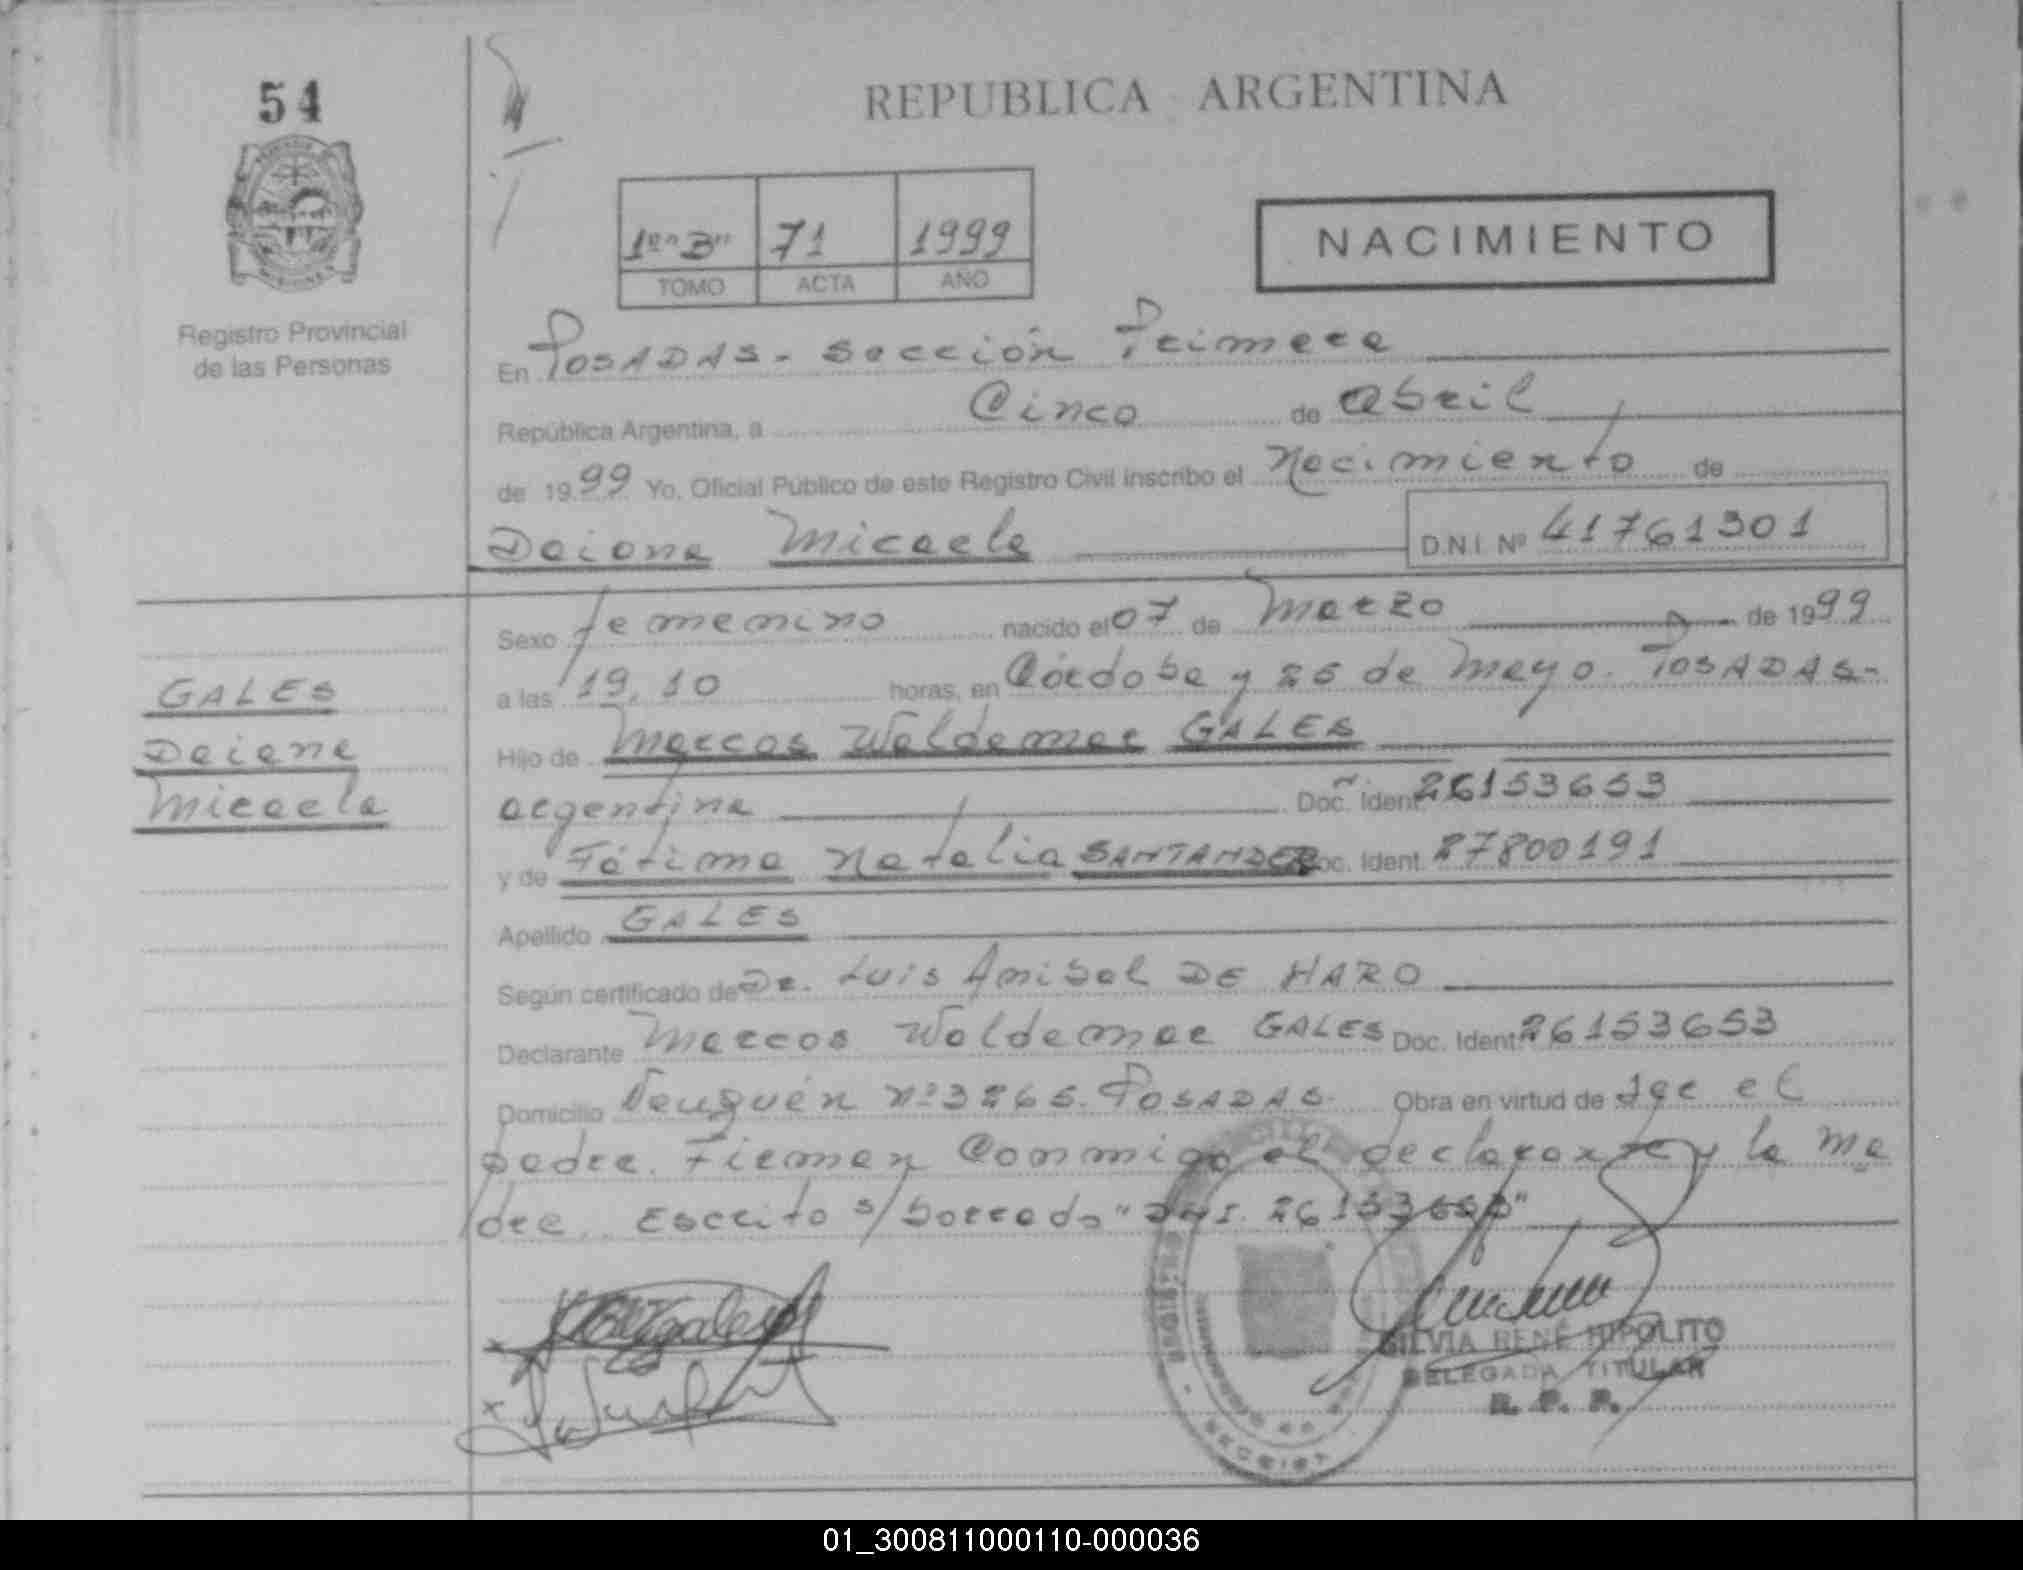 54
REPUBLICA ARGENTINA
1º "B" 71 1999
TOMO ACTA AÑO
NACIMIENTO
Registro Provincial
de las Personas
En POSADAS - Sección Primera
República Argentina, a Cinco de abril
de 1999 Yo, Oficial Público de este Registro Civil inscribo el Nacimiento de
Daiana Micaela D.N.I. Nº 41761301
Sexo femenino nacido el 07 de Marzo de 1999
a las 19,10 horas, en Córdoba y 25 de Mayo. POSADAS-
GALES
Daiana
Micaela
Hijo de Marcos Waldemar GALES
argentina Doc. Ident. 26153653
y de Fátima Natalia SANTANDER Doc. Ident. 27800191
Apellido GALES
Según certificado de Dr. Luis Anibal DE HARO
Declarante Marcos Waldemar GALES Doc. Ident. 26153653
Domicilio Neuquén Nº 3265. POSADAS. Obra en virtud de ser el
padre. Firman Conmigo el declarante y la ma
dre. Escrito s/borrado "DNI. 26153653"
SILVIA RENÉ HIPOLITO
DELEGADA TITULAR
R. P. P.
01_300811000110-000036